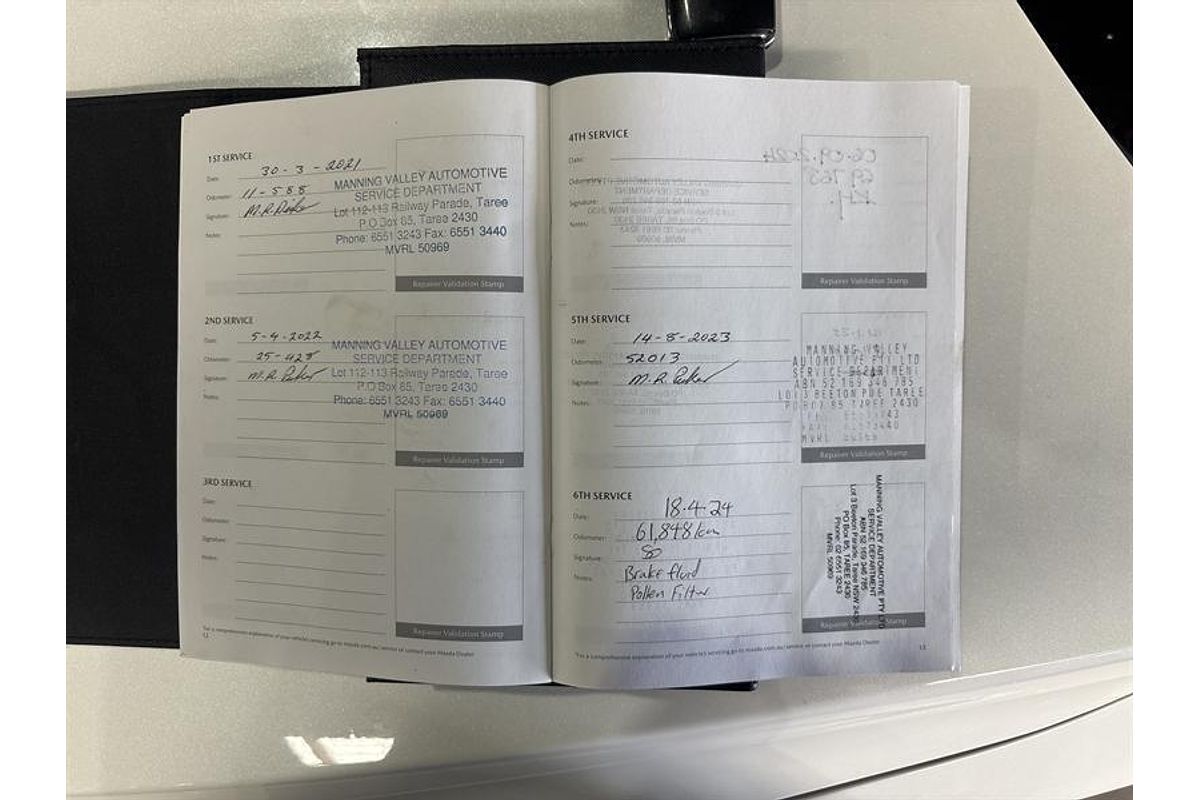 1ST SERVICE
Date: 30-3-2021
Odometer: 11-588
Signature: M.R. Parker
Notes:
MANNING VALLEY AUTOMOTIVE
SERVICE DEPARTMENT
Lot 112-113 Railway Parade, Taree
P.O Box 85, Taree 2430
Phone: 6551 3243 Fax: 6551 3440
MVRL 50969
Repairer Validation Stamp
2ND SERVICE
Date: 5-4-2022
Odometer: 25-428
Signature: M.R. Parker
Notes:
MANNING VALLEY AUTOMOTIVE
SERVICE DEPARTMENT
Lot 112-113 Railway Parade, Taree
P.O Box 85, Taree 2430
Phone: 6551 3243 Fax: 6551 3440
MVRL 50969
Repairer Validation Stamp
3RD SERVICE
Date:
Odometer:
Signature:
Notes:
Repairer Validation Stamp
*For a comprehensive explanation of your vehicle's servicing go to mazda.com.au/service or contact your Mazda Dealer
12
4TH SERVICE
Date:
Odometer:
Signature:
Notes:
Repairer Validation Stamp
5TH SERVICE
Date: 14-8-2023
Odometer: 52013
Signature: M.R. Parker
Notes:
MANNING VALLEY
AUTOMOTIVE PTY LTD
SERVICE DEPARTMENT
ABN 52 169 346 785
LOT 3 BEETON PDE TAREE
PO BOX 85 TAREE 2430
MVRL
Repairer Validation Stamp
6TH SERVICE
Date: 18.4.24
Odometer: 61,848km
Signature:
Notes: Brake fluid
Pollen Filter
MANNING VALLEY AUTOMOTIVE PTY LTD
SERVICE DEPARTMENT
ABN 52 169 346 785
Lot 3 Beeton Parade, Taree NSW
PO Box 85, TAREE 2430
Phone: 02 6551 3243
MVRL 50969
Repairer Validation Stamp
*For a comprehensive explanation of your vehicle's servicing go to mazda.com.au/service or contact your Mazda Dealer
13